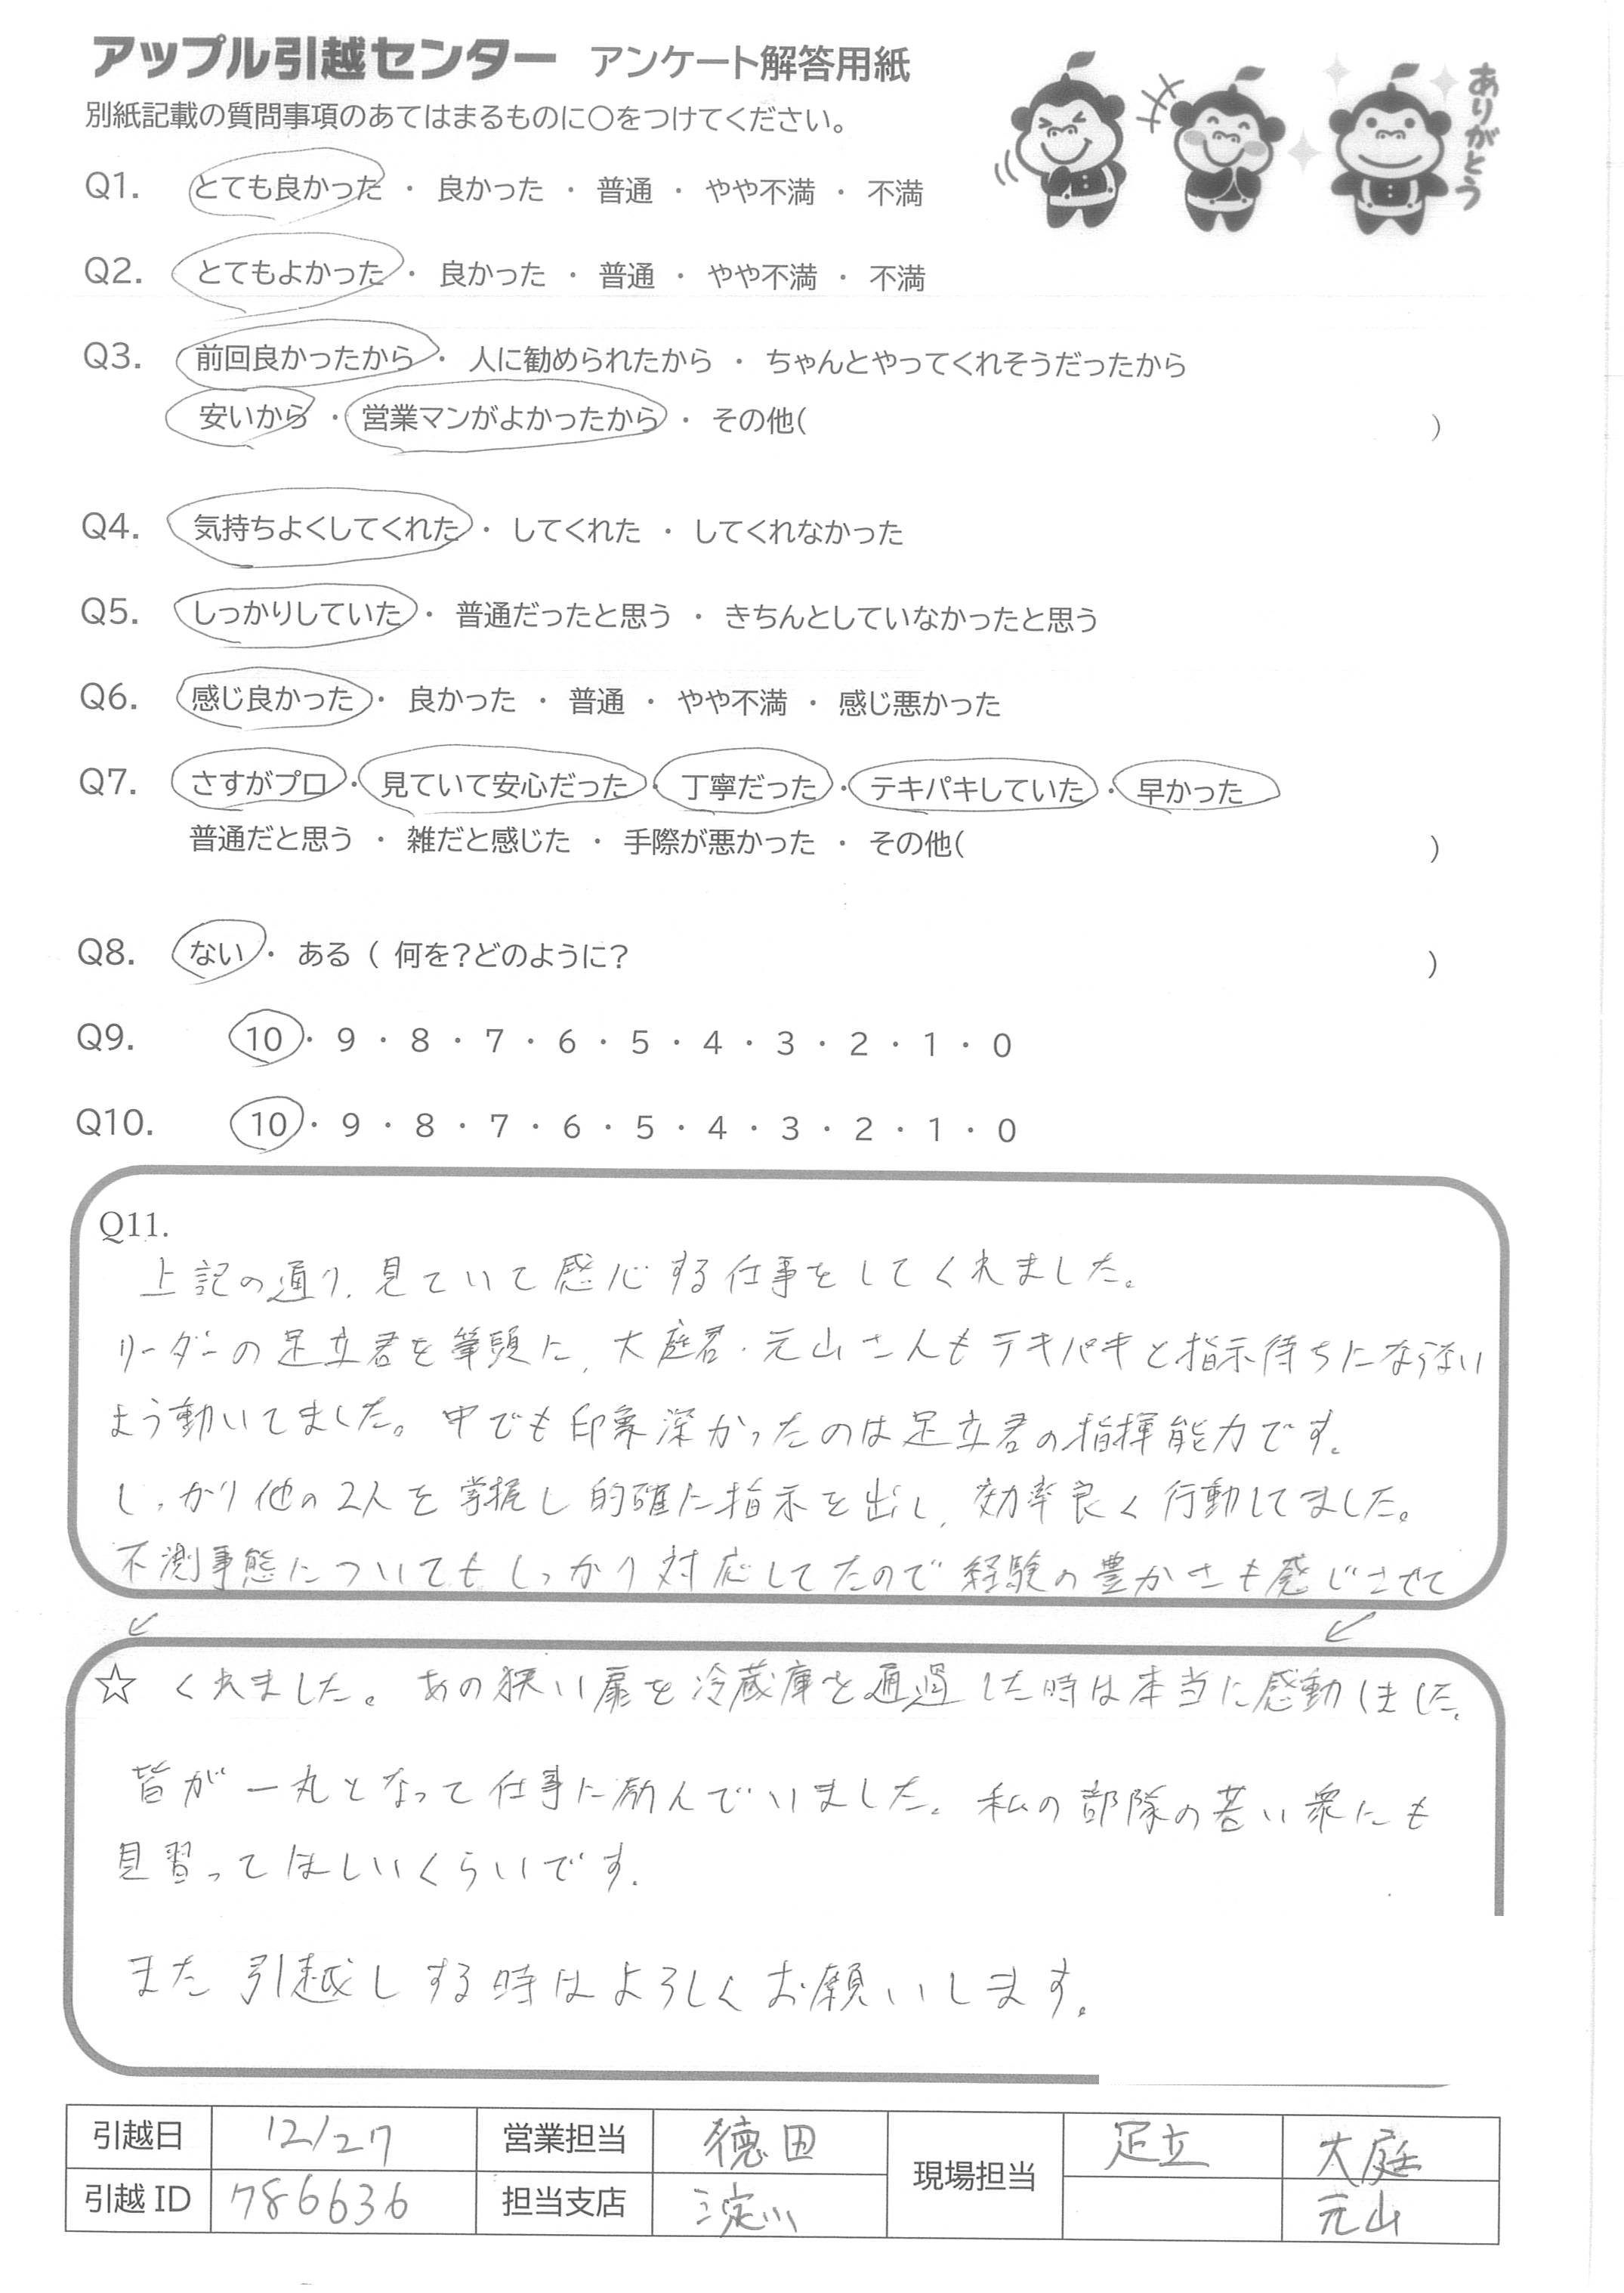 アップル引越センター アンケート解答用紙
別紙記載の質問事項のあてはまるものに○をつけてください。
ありがとう
Q1. とても良かった ・ 良かった ・ 普通 ・ やや不満 ・ 不満
Q2. とてもよかった ・ 良かった ・ 普通 ・ やや不満 ・ 不満
Q3. 前回良かったから ・ 人に勧められたから ・ ちゃんとやってくれそうだったから
安いから ・ 営業マンがよかったから ・ その他( )
Q4. 気持ちよくしてくれた ・ してくれた ・ してくれなかった
Q5. しっかりしていた ・ 普通だったと思う ・ きちんとしていなかったと思う
Q6. 感じ良かった ・ 良かった ・ 普通 ・ やや不満 ・ 感じ悪かった
Q7. さすがプロ ・ 見ていて安心だった ・ 丁寧だった ・ テキパキしていた ・ 早かった
普通だと思う ・ 雑だと感じた ・ 手際が悪かった ・ その他( )
Q8. ない ・ ある ( 何を?どのように? )
Q9. 10 ・ 9 ・ 8 ・ 7 ・ 6 ・ 5 ・ 4 ・ 3 ・ 2 ・ 1 ・ 0
Q10. 10 ・ 9 ・ 8 ・ 7 ・ 6 ・ 5 ・ 4 ・ 3 ・ 2 ・ 1 ・ 0
Q11.
上記の通り、見ていて感心する仕事をしてくれました。
リーダーの足立君を筆頭に、大庭君・元山さんもテキパキと指示待ちにならない
よう動いてました。中でも印象深かったのは足立君の指揮能力です。
しっかり他の2人を掌握し的確に指示を出し、効率良く行動してました。
不測事態についてもしっかり対応してたので経験の豊かさも感じさせて
☆ くれました。あの狭い扉を冷蔵庫を通過した時は本当に感動しました。
皆が一丸となって仕事に励んでいました。私の部隊の若い衆にも
見習ってほしいくらいです。
また引越しする時はよろしくお願いします。
引越日 12/27 営業担当 徳田 現場担当 足立 大庭
引越ID 786636 担当支店 淀川 元山